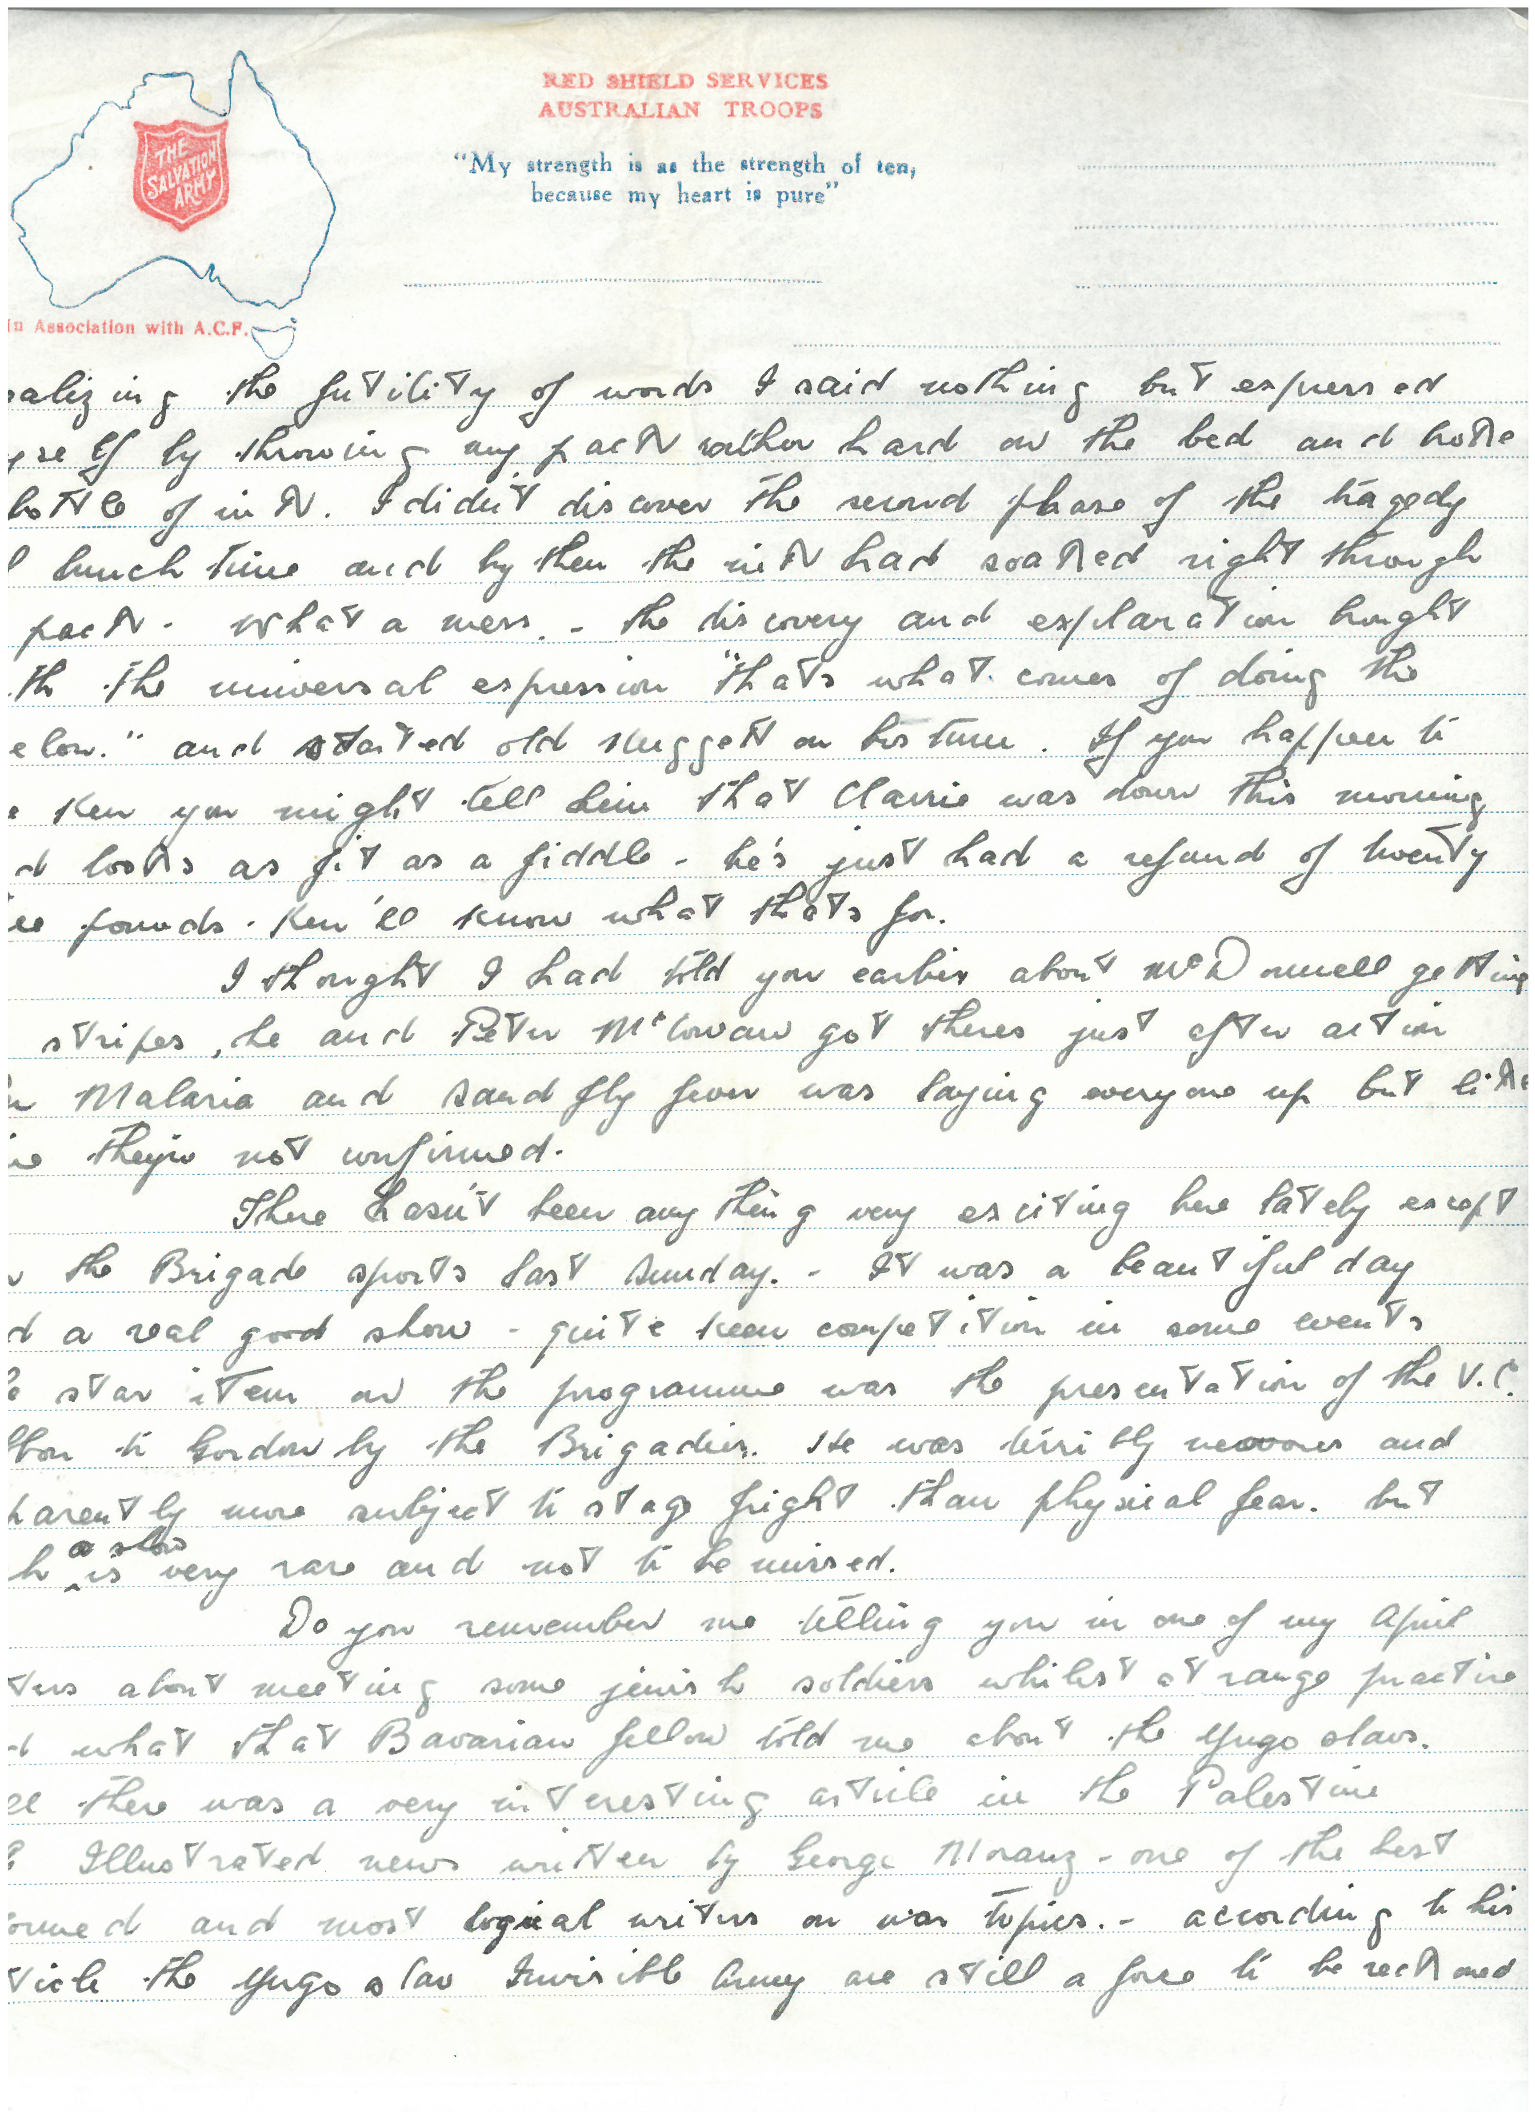 THE
SALVATION
ARMY
RED SHIELD SERVICES
AUSTRALIAN TROOPS
"My strength is as the strength of ten,
because my heart is pure"
In Association with A.C.F.
ealizing the futility of words I said nothing but expressed
yself by throwing my pack rather hard on the bed and broke
bottle of ink. I didn't discover the second phase of the tragedy
l lunch time and by then the ink had soaked right through
pack. What a mess. - the discovery and explanation brought
th the universal expression "thats what comes of doing the
elow." and started old Nuggett on his tune. If you happen to
e Ken you might tell him that Clarrie was down this morning
d looks as fit as a fiddle - he's just had a refund of twenty
ee pounds. Ken'll know what thats for.
I thought I had told you earlier about McDonnell getting
stripes, he and Peter McCowan got theres just after action
n Malaria and Sand fly fever was laying everyone up but like
ne they're not confirmed.
There hasn't been anything very exciting here lately except
r the Brigade sports last Sunday. - It was a beautiful day
d a real good show - quite keen competition in some events
e star item on the programme was the presentation of the V.C.
bbon to Gordon by the Brigadier. He was terribly nervous and
parently more subject to stage fright than physical fear. but
h a show is very rare and not to be missed.
Do you remember me telling you in one of my April
ters about meeting some jewish soldiers whilst at range practice
d what that Bavarian fellow told me about the Yugo slavs.
ll there was a very interesting article in the Palestine
Illustrated news written by George Moranz - one of the best
ormed and most logical writers on war topics. - according to his
ticle the Yugo slav Invisible Army are still a force to be reckoned